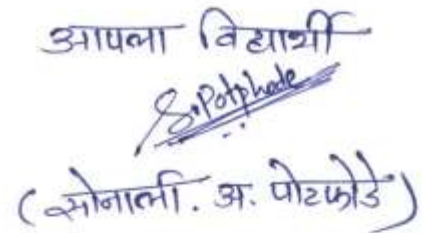 आपला विद्यार्थी
S.Potphode
(सोनाली. अ. पोटफोडे)